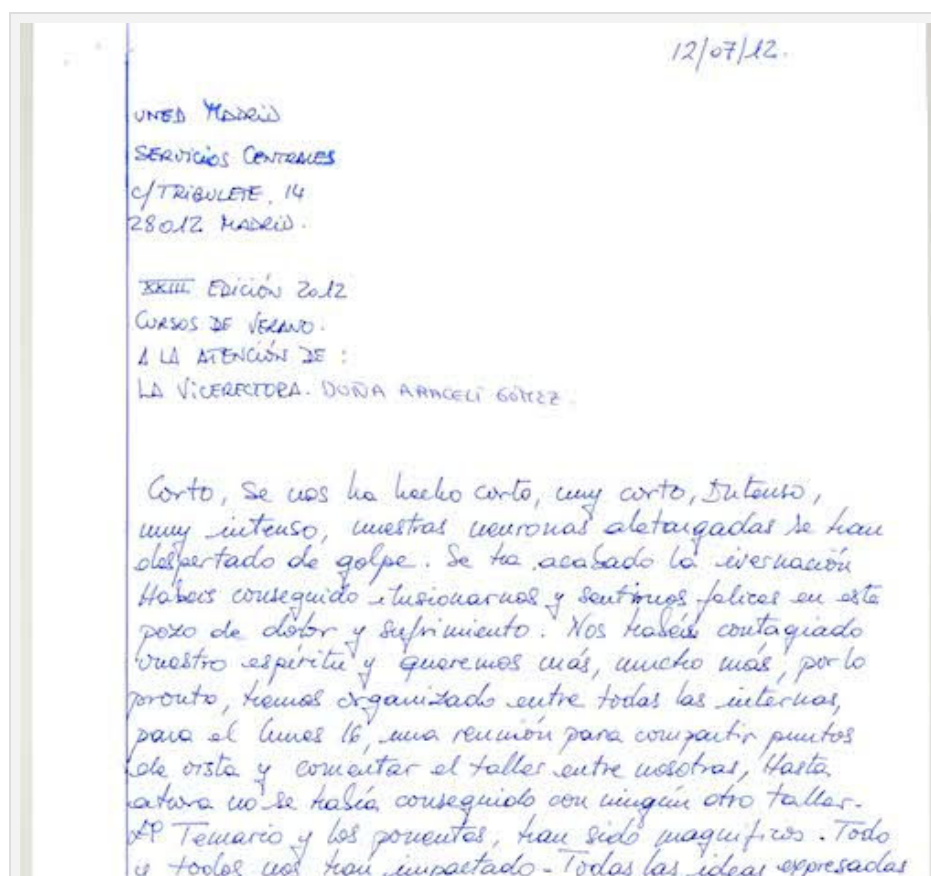 12/07/12.
UNED MADRID
SERVICIOS CENTRALES
C/TRIBULETE, 14
28012 MADRID.
XXIII EDICIÓN 2012
CURSOS DE VERANO.
A LA ATENCIÓN DE :
LA VICERECTORA. DOÑA ARACELI GÓMEZ.
Corto, Se nos ha hecho corto, muy corto, Intenso,
muy intenso, nuestras neuronas aletargadas se han
despertado de golpe. Se ha acabado la ivernación
Habeis conseguido ilusionarnos y sentirnos felices en este
pozo de dolor y sufrimiento. Nos habéis contagiado
vuestro espíritu y queremos más, mucho más, por lo
pronto, hemos organizado entre todas las internas,
para el lunes 16, una reunión para compartir puntos
de vista y comentar el taller entre nosotras, Hasta
ahora no se había conseguido con ningún otro taller.
El Temario y los ponentes, han sido magnificos. Todo
y todos nos han impactado. Todas las ideas expresadas